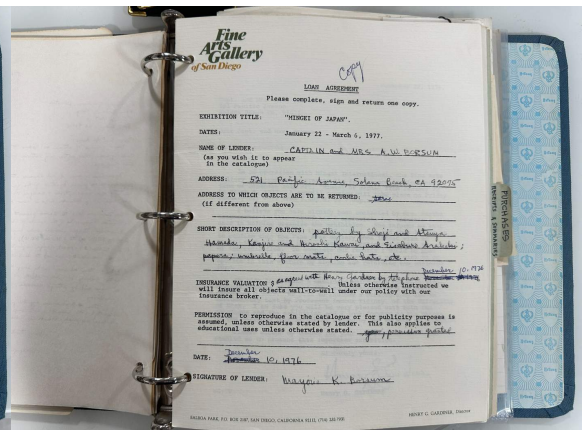 Fine
Arts
Gallery
of San Diego
Copy
LOAN AGREEMENT
Please complete, sign and return one copy.
EXHIBITION TITLE: "MINGEI OF JAPAN".
DATES: January 22 - March 6, 1977.
NAME OF LENDER: CAPTAIN and MRS A.W. BORSUM
(as you wish it to appear
in the catalogue)
ADDRESS: 521 Pacific Avenue, Solana Beach, CA 92075
ADDRESS TO WHICH OBJECTS ARE TO BE RETURNED:
(if different from above)
SHORT DESCRIPTION OF OBJECTS: pottery by Shoji and Atsuya
Hamada, Kanjiro and Hiroshi Kawai, and
papers; umbrella, floor mats, hats, etc.
INSURANCE VALUATION $ as agreed with Henry Gardiner by telephone December 10, 1976
Unless otherwise instructed we
will insure all objects wall-to-wall under our policy with our
insurance broker.
PERMISSION to reproduce in the catalogue or for publicity purposes is
assumed, unless otherwise stated by lender. This also applies to
educational uses unless otherwise stated. permission granted
DATE: December 10, 1976
SIGNATURE OF LENDER: K. Borsum
BALBOA PARK, P.O. BOX 2107, SAN DIEGO, CALIFORNIA 92112,
HENRY G. GARDINER, Director
PURCHASES
RECEIPTS & SUMMARIES